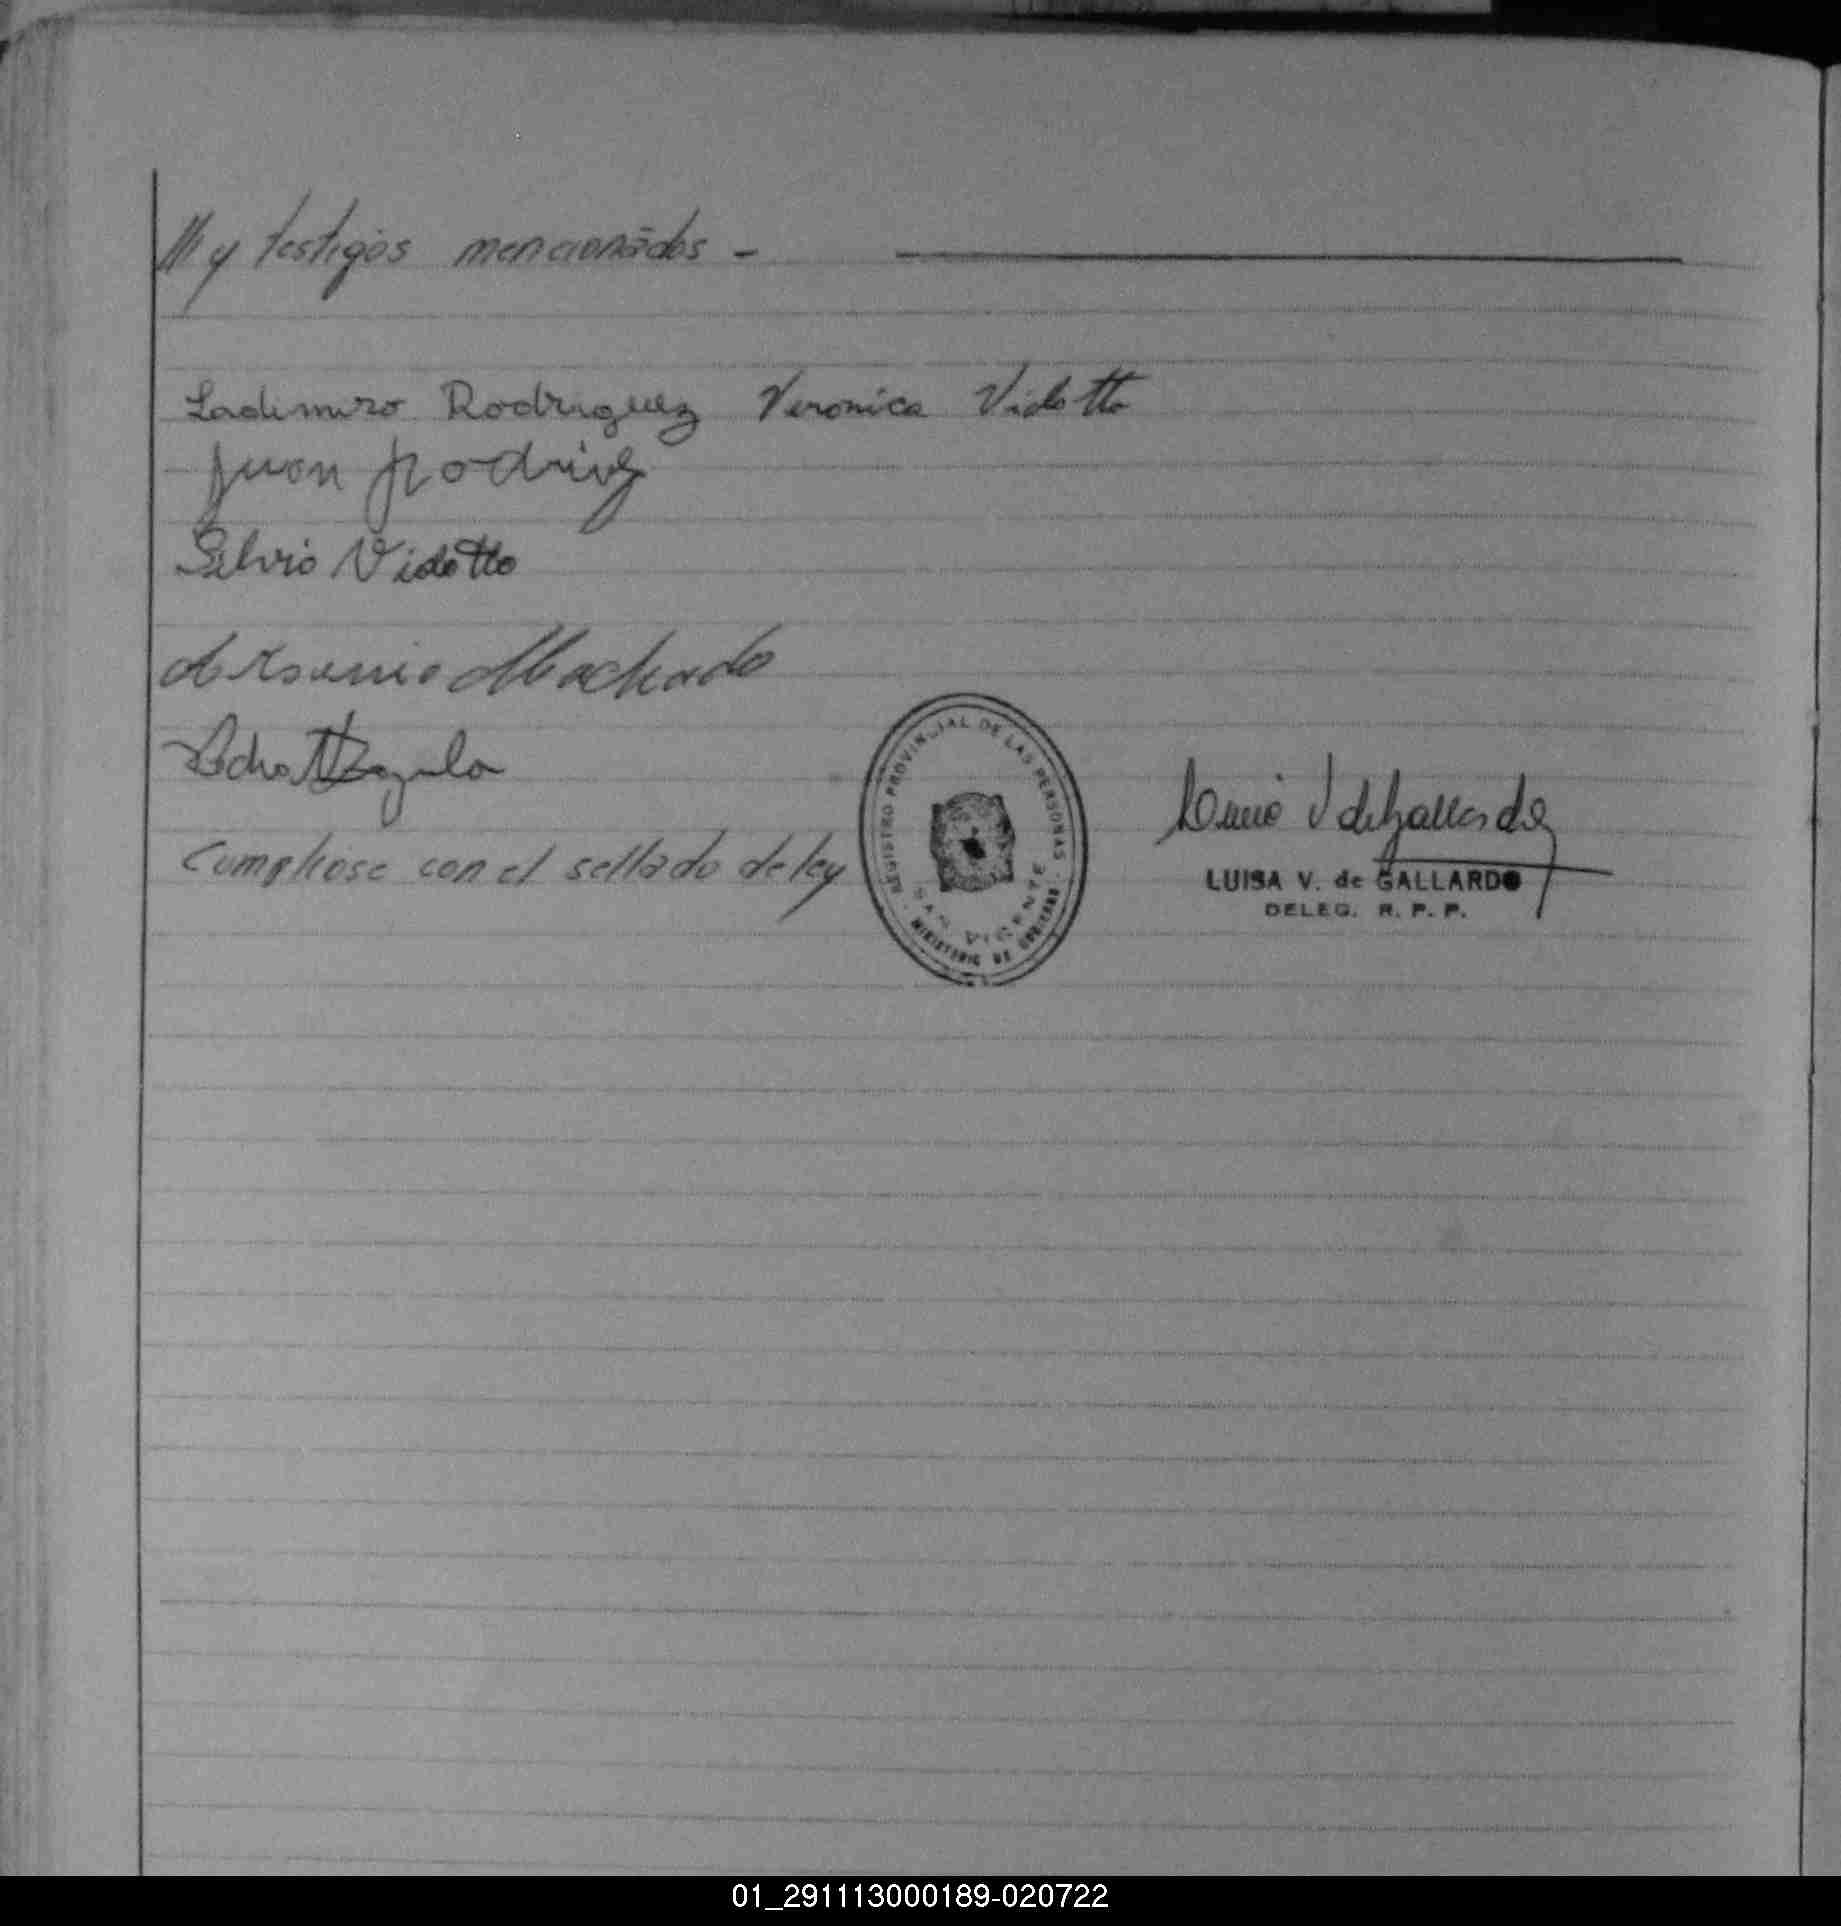 /// y testigos mencionados -
Ladimiro Rodriguez Veronica Vidotto
Juan Rodrig
Silvio Vidotto
Arsenio Machado
Pedro
Cumpliose con el sellado de ley
REGISTRO PROVINCIAL DE LAS PERSONAS
SAN VICENTE
MINISTERIO DE GOBIERNO
V de Gallardo
LUISA V. de GALLARDO
DELEG. R. P. P.
01_291113000189-020722